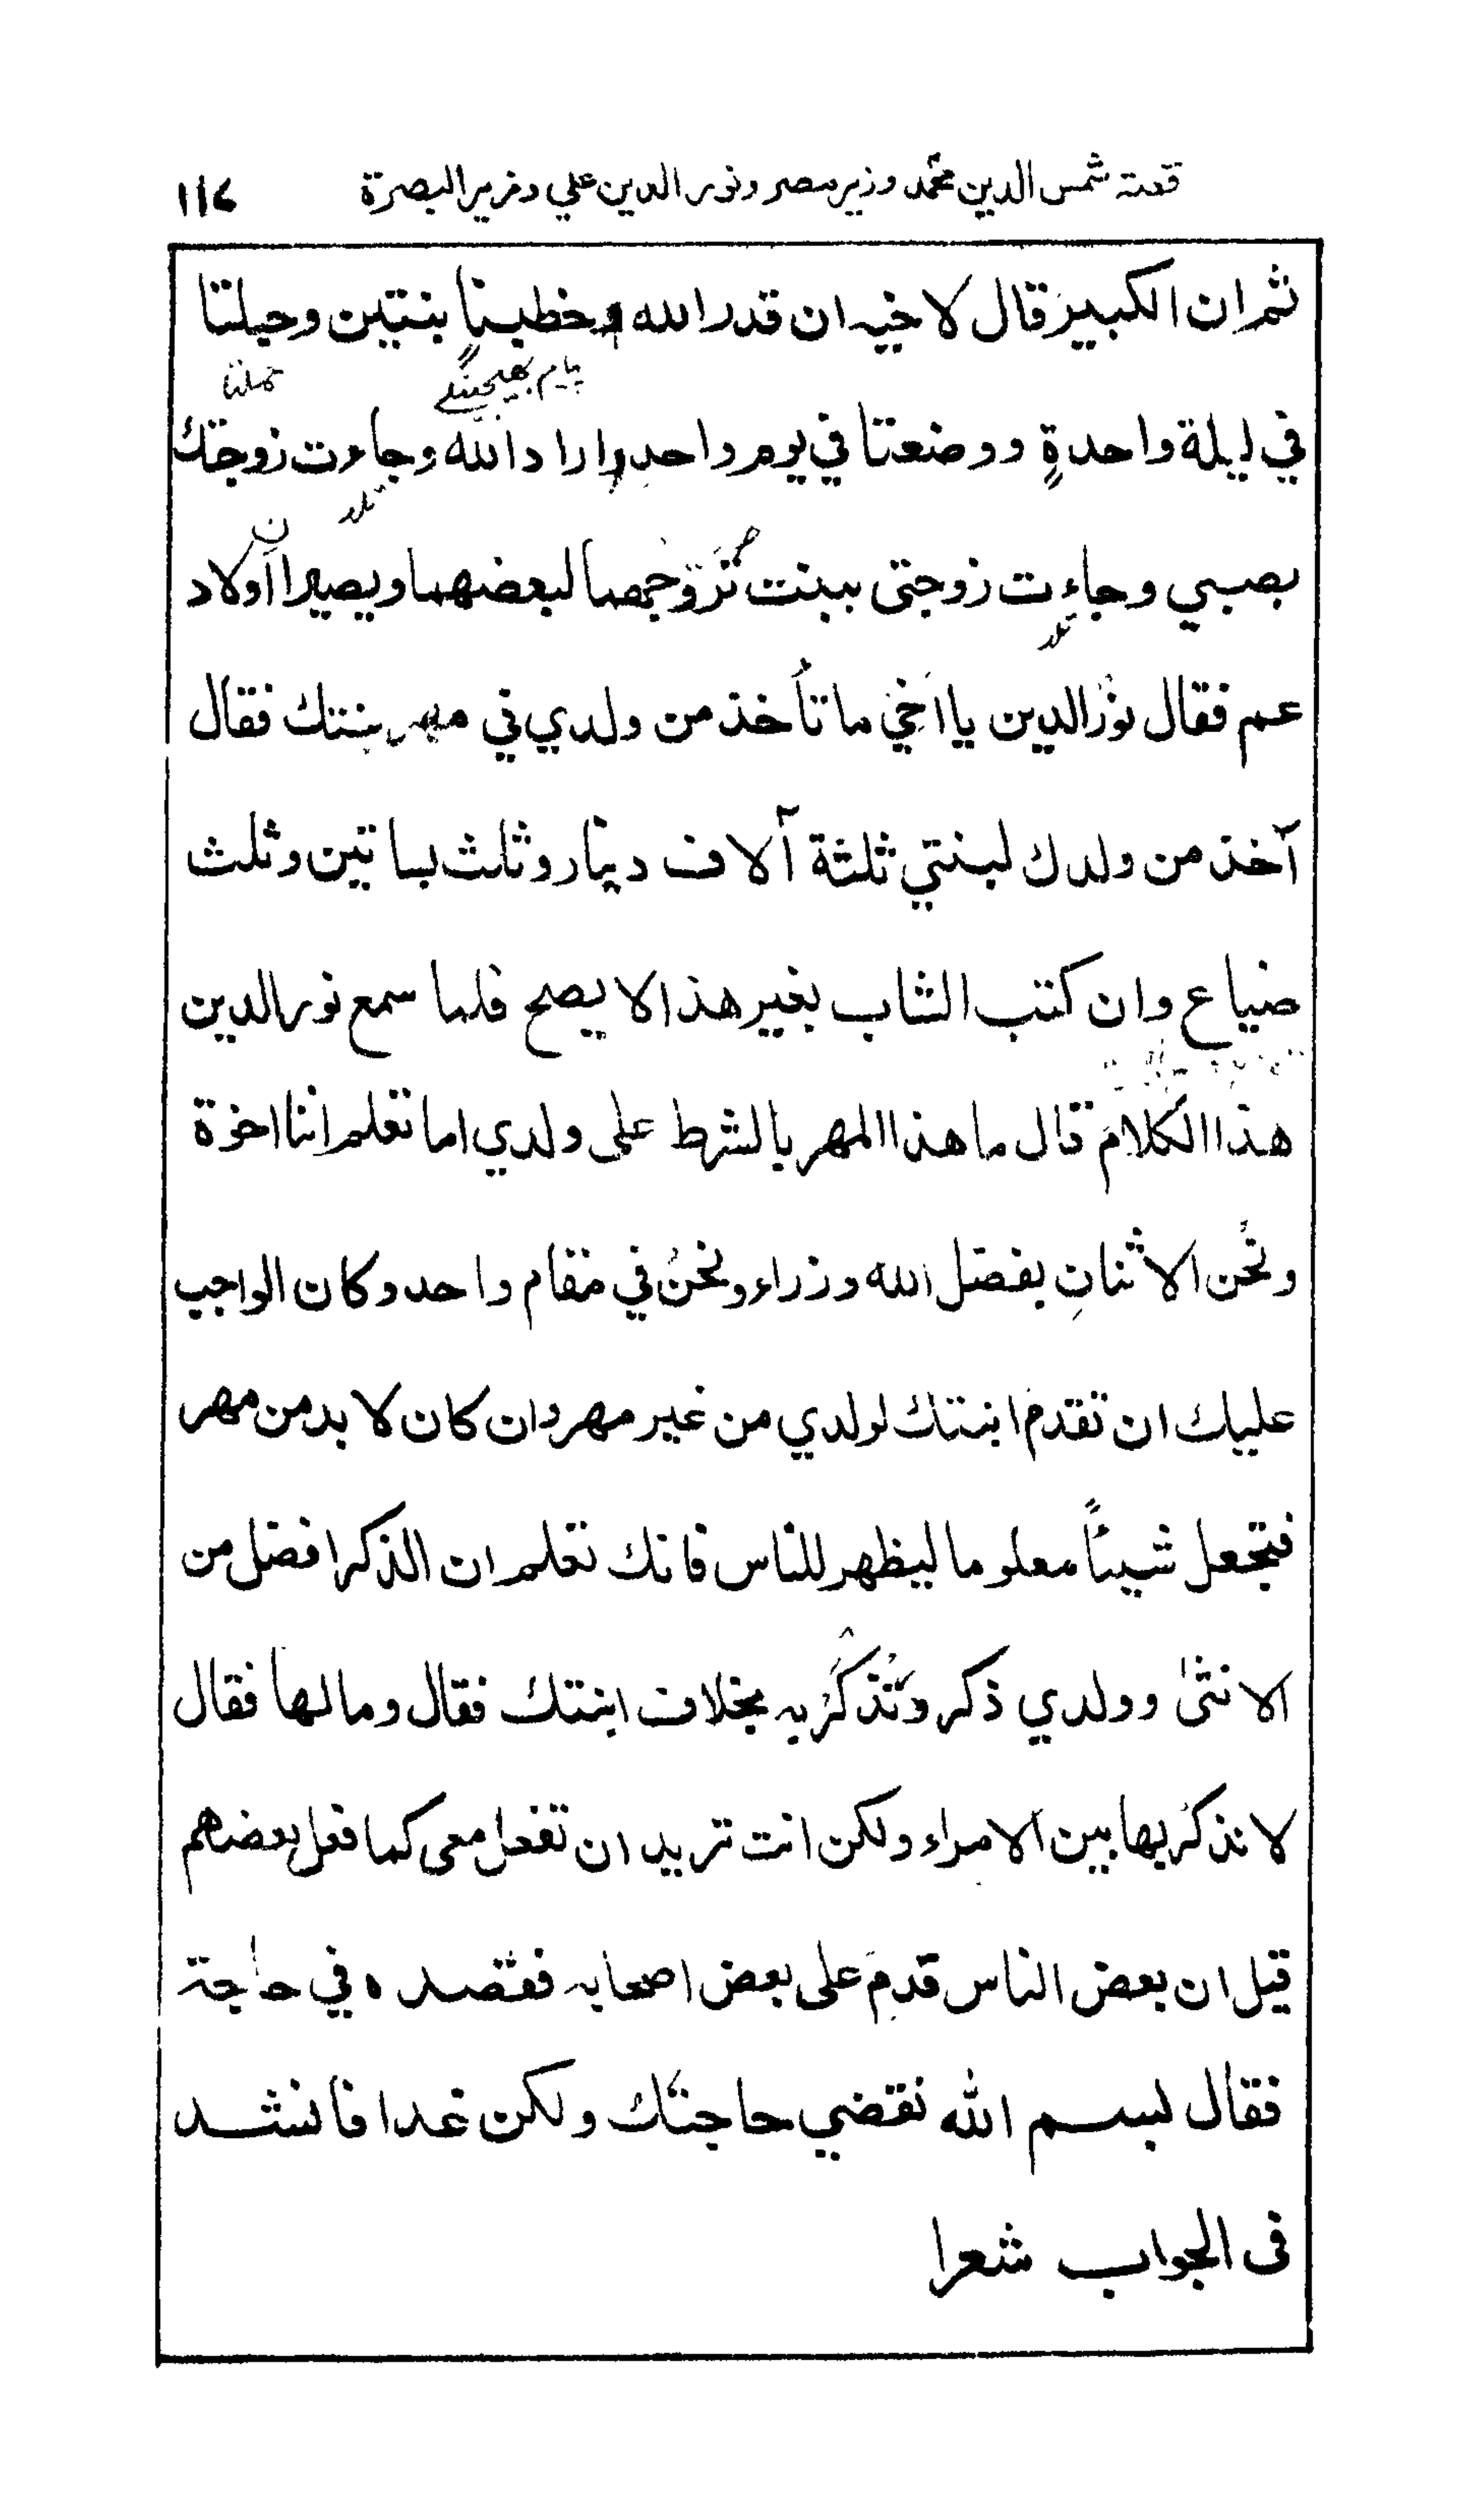 قصة شمس الدين محمد وزير مصر ونور الدين علي وزير البصرة
ثم ان الكبيرَ قال لاخيه ان قدر الله وخطبنا بنتين وحبلتا
في ليلة واحدةٍ ووضعتا في يوم واحدٍ واراد الله وجاءت زوجتك
بصبي وجاءت زوجتى ببنت نُزَوّجهما لبعضهما ويصيرا اولاد
عم فقال نورُ الدين يا اَخي ما تأخذ من ولدي في مهر بنتك فقال
آخذ من ولدك لبنتي ثلثة آلاف دينار وثلث بساتين وثلث
ضياع وان كتب الشاب بغير هذا لا يصح فلما سمع نور الدين
هذا الكلامَ قال ما هذا المهر بالشرط على ولدي اما تعلم اننا اخوة
ونحُن الاثنانِ بفضل الله وزراء ونحنُ في مقام واحد وكان الواجب
عليك ان تقدمَ ابنتك لولدي من غير مهر وان كان لا بد من مهر
فتجعل شيئاً معلوما ليظهر للناس فانك تعلم ان الذكر افضل من
الانثىٰ وولدي ذكر ونُذكَرُ به بخلاف ابنتك فقال وما لها فقال
لا نذكرُ بها بين الامراء ولكن انت تريد ان تفعل معى كما فعل بعضهم
قيل ان بعض الناس قدِمَ على بعض اصحابه فقصده في حاجة
فقال بسم الله نقضي حاجتَك ولكن غدا فانشد
فى الجواب شعرا